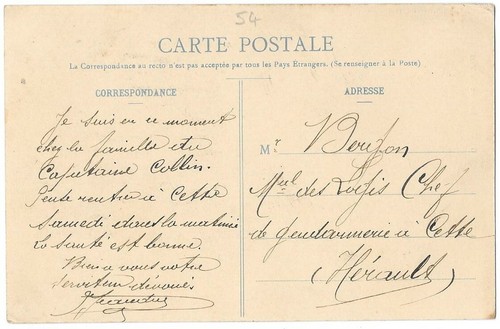 54
CARTE POSTALE
La Correspondance au recto n'est pas acceptée par tous les Pays Étrangers. (Se renseigner à la Poste)
CORRESPONDANCE
Je suis en ce moment
chez la famille du
Capitaine Collin.
rentrer à Cette
Samedi dans la matinée
La santé est bonne.
Bien a vous votre
serviteur dévoué
ADRESSE
Mr
Mal des Logis Chef
de gendarmerie à Cette
(Hérault)